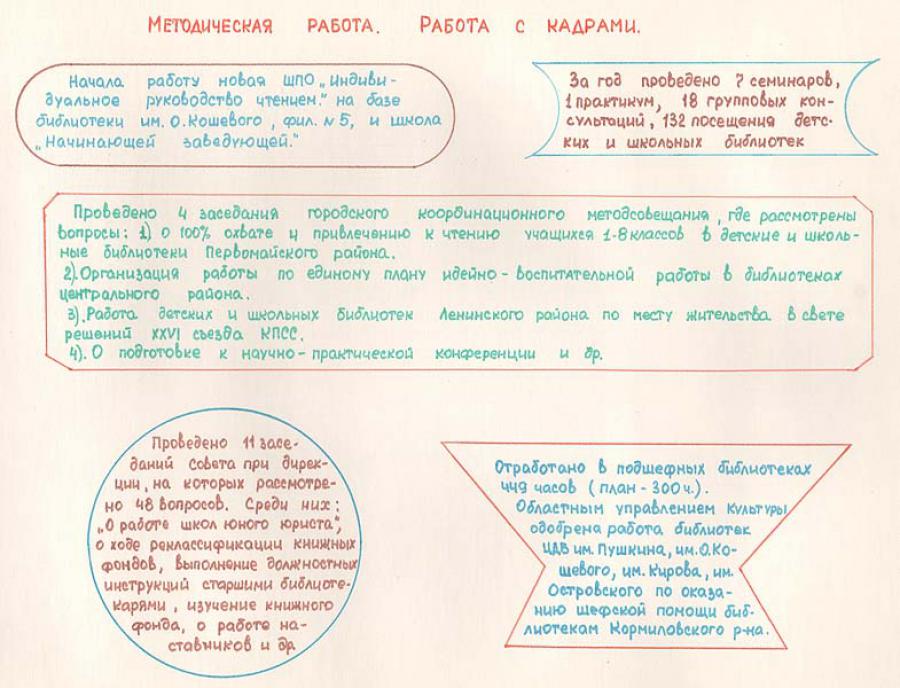 Методическая работа. Работа с кадрами.
Начала работу новая ШПО „Индиви-
дуальное руководство чтением." на базе
библиотеки им. О.Кошевого, фил. №5, и школа
„Начинающей заведующей."
За год проведено 7 семинаров,
1 практикум, 18 групповых кон-
сультаций, 132 посещения детс-
ких и школьных библиотек
Проведено 4 заседания городского координационного методсовещания, где рассмотрены
вопросы: 1) О 100% охвате и привлечению к чтению учащихся 1-8 классов в детские и школь-
ные библиотеки Первомайского района.
2). Организация работы по единому плану идейно-воспитательной работы в библиотеках
центрального района.
3). Работа детских и школьных библиотек Ленинского района по месту жительства в свете
решений XXVI съезда КПСС.
4). О подготовке к научно-практической конференции и др.
Проведено 11 засе-
даний Совета при дирек-
ции, на которых рассмотре-
но 48 вопросов. Среди них:
„О работе школ юного юриста",
о ходе реклассификации книжных
фондов, выполнение должностных
инструкций старшими библиоте-
карями, изучение книжного
фонда, о работе на-
ставников и др
Отработано в подшефных библиотеках
449 часов (план-300ч.).
Областным управлением культуры
одобрена работа библиотек
ЦДБ им. Пушкина, им. О.Ко-
шевого, им. Кирова, им.
Островского по оказа-
нию шефской помощи биб-
лиотекам Кормиловского р-на.